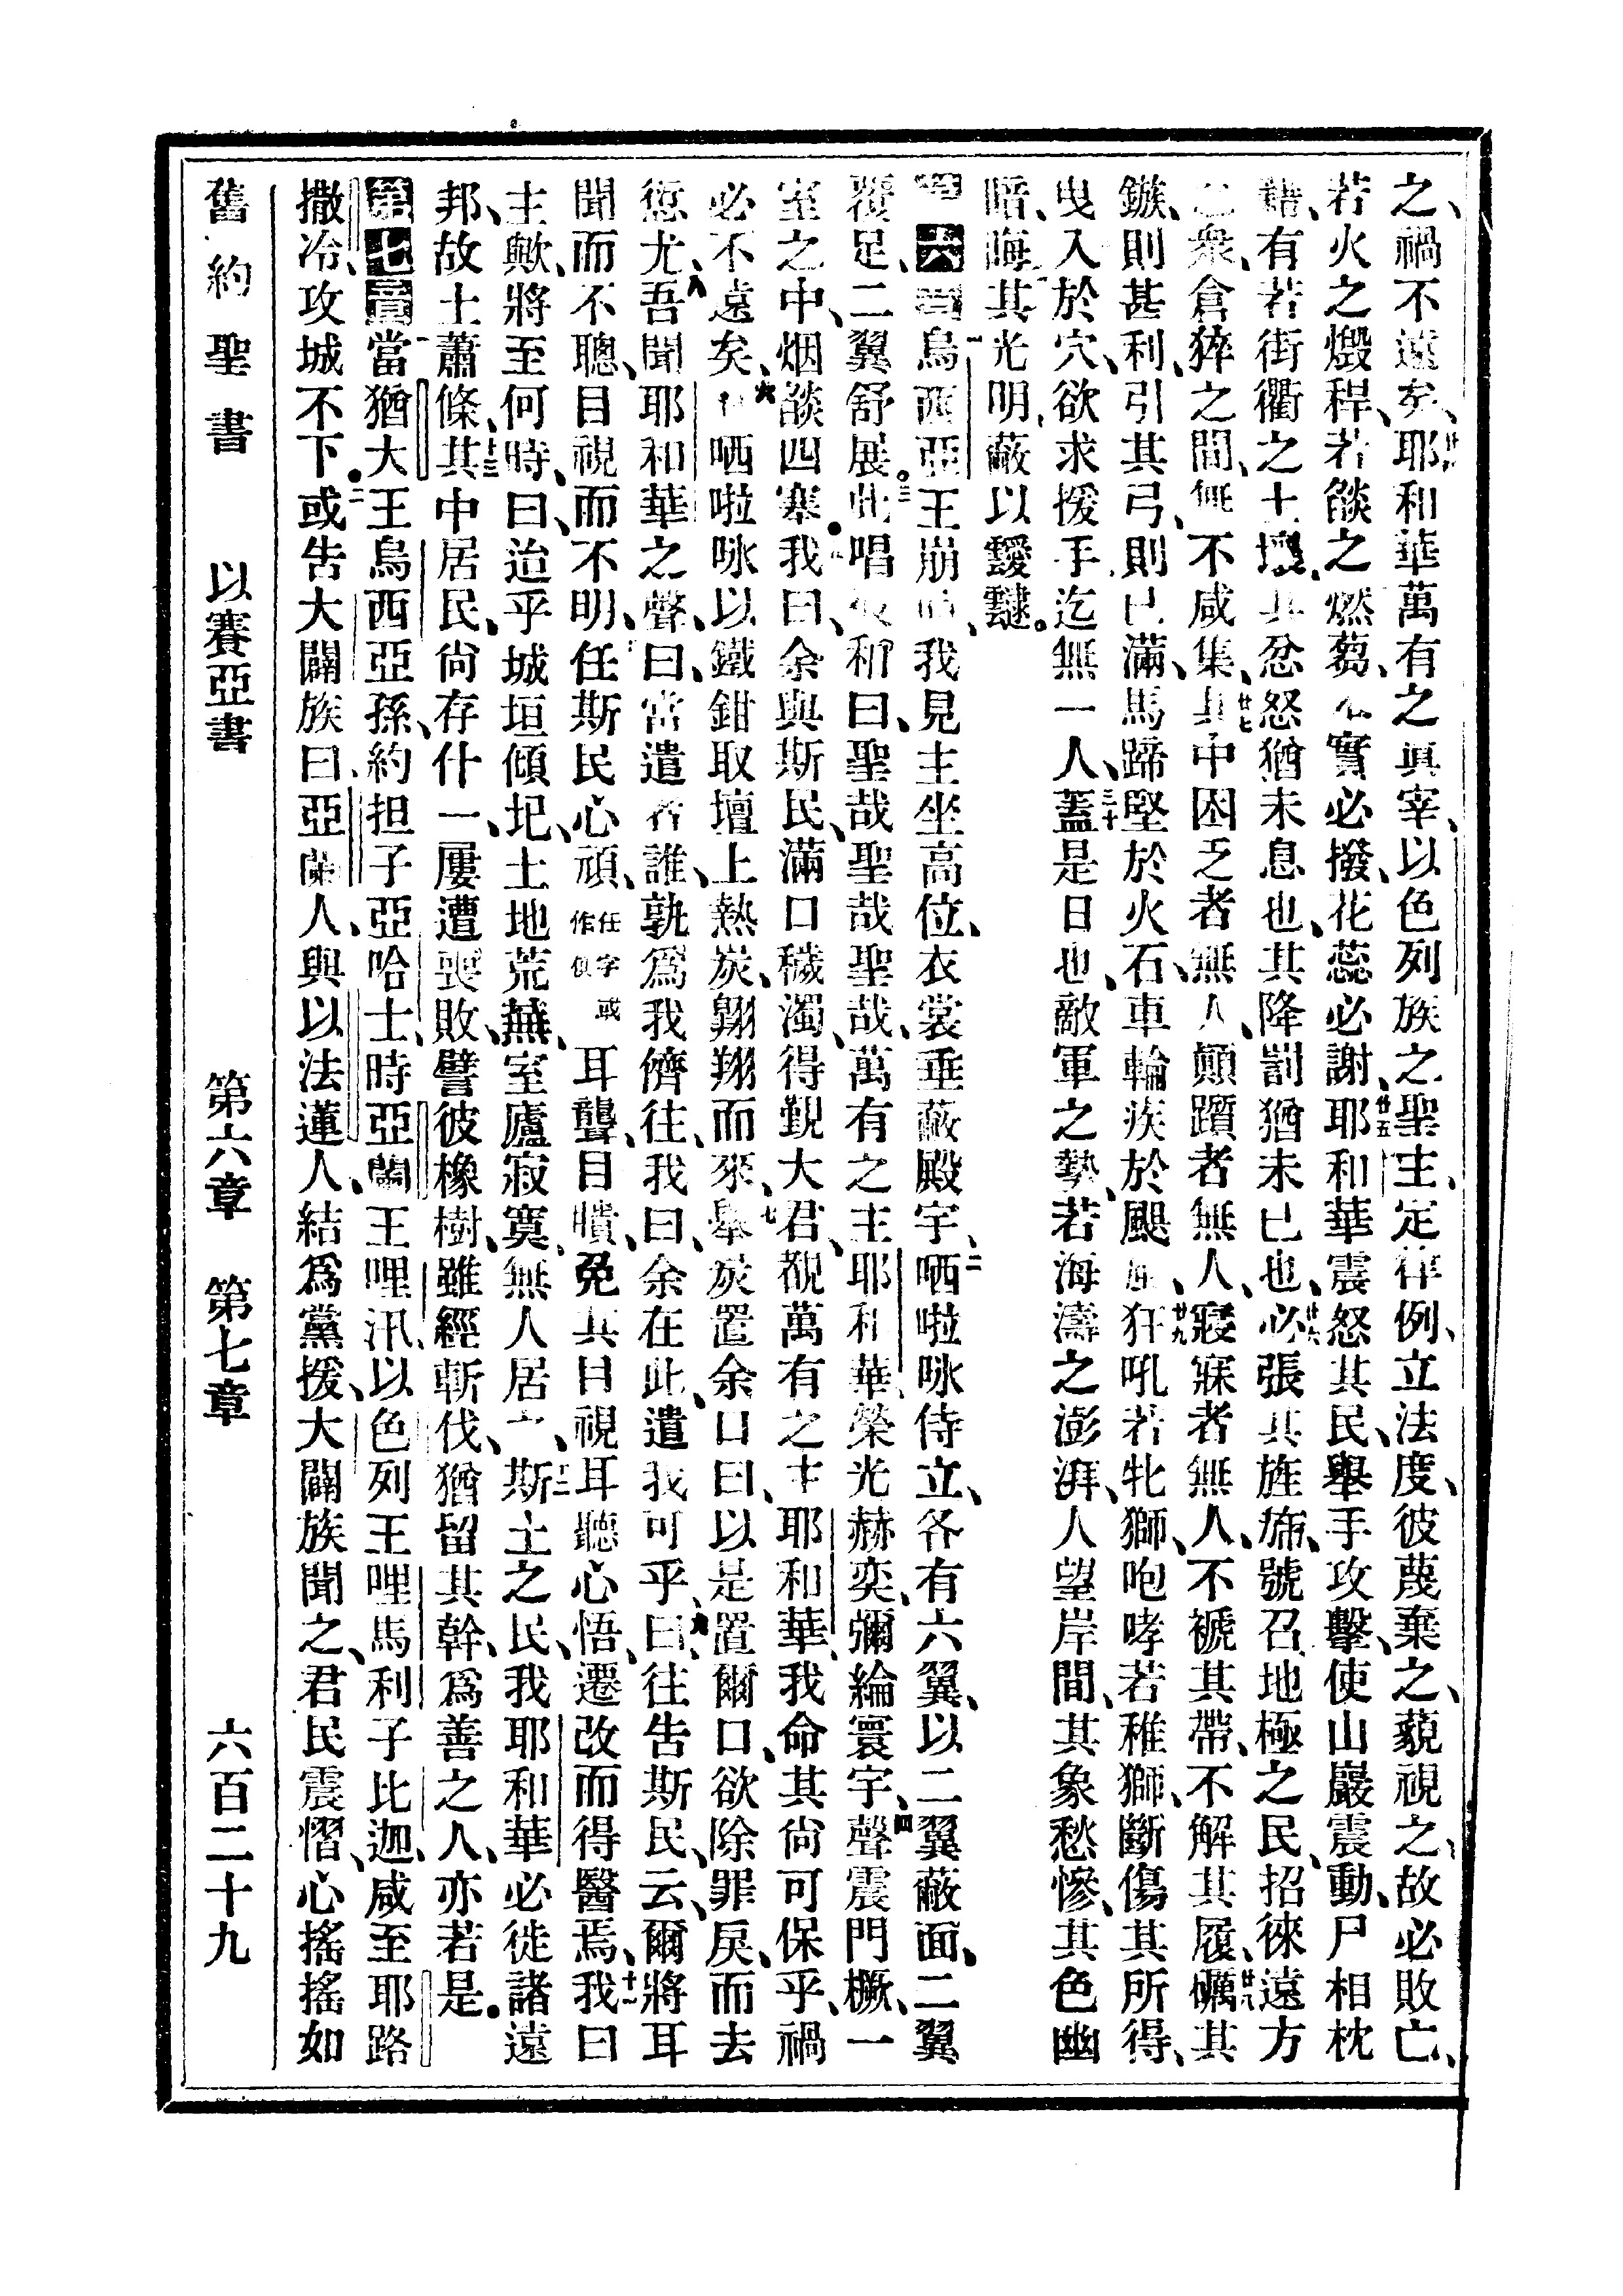 之、禍不遠矣、耶和華萬有之眞宰、以色列族之聖主、定律例、立法度、彼蔑棄之、藐視之、故必敗亡、
若火之燬稈、若燄之燃芻、實必撥、花蕊必謝、廿五耶和華震怒其民、舉手攻擊、使山巖震動、尸相枕
藉、有若街衢之土壤、其忿怒猶未息也、其降罰猶未已也、廿六必張其旌旆、號召地極之民、招徠遠方
之衆、倉猝之間、無不咸集、廿七其中困乏者無人、顚躓者無人、寢寐者無人、不褫其帶、不解其履、廿八礪其
鏃、則甚利、引其弓、則已滿、馬蹄堅於火石、車輪疾於颶、廿九狂吼若牝獅、咆哮若稚獅、斷傷其所得、
曳入於穴、欲求援手、迄無一人、三十蓋是日也、敵軍之勢、若海濤之澎湃、人望岸間、其象愁慘、其色幽
暗、晦其光明、蔽以靉靆。
第六章一烏西亞王崩時、我見主坐高位、衣裳垂蔽殿宇、二哂啦咏侍立、各有六翼、以二翼蔽面、二翼
覆足、二翼舒展。三此唱彼和曰、聖哉聖哉聖哉、萬有之主耶和華、榮光赫奕、彌綸寰宇、四聲震門橛、一
室之中、烟燄四塞。我曰、余與斯民、滿口穢濁、得覲大君、覩萬有之主耶和華、我命其尙可保乎、禍
必不遠矣、六哂啦咏以鐵鉗取壇上熱炭、翺翔而來、七舉炭置余口曰、以是置爾口、欲除罪戾、而去
愆尤、八吾聞耶和華之聲、曰、當遣者誰、孰爲我儕往、我曰、余在此、遣我可乎、九曰、往告斯民、云、爾將耳
聞而不聰、目視而不明、任斯民心頑、任字或作使耳聾、目瞶、免其目視耳聽心悟、遷改而得醫焉、十一我曰
主歟、將至何時、曰、迨乎城垣傾圮、土地荒蕪、室廬寂寞、無人居之、十二斯土之民、我耶和華必徙諸遠
邦、故土蕭條、十三其中居民、尙存什一、屢遭喪敗、譬彼橡樹、雖經斬伐、猶留其幹、爲善之人、亦若是。
第七章一當猶大王烏西亞孫、約担子亞哈士、時亞蘭王哩汛、以色列王哩馬利子比迦、咸至耶路
撒冷、攻城不下。二或告大闢族曰、亞蘭人、與以法蓮人、結爲黨援、大闢族聞之、君民震慴、心搖搖如
舊約聖書 以賽亞書 第六章 第七章 六百二十九